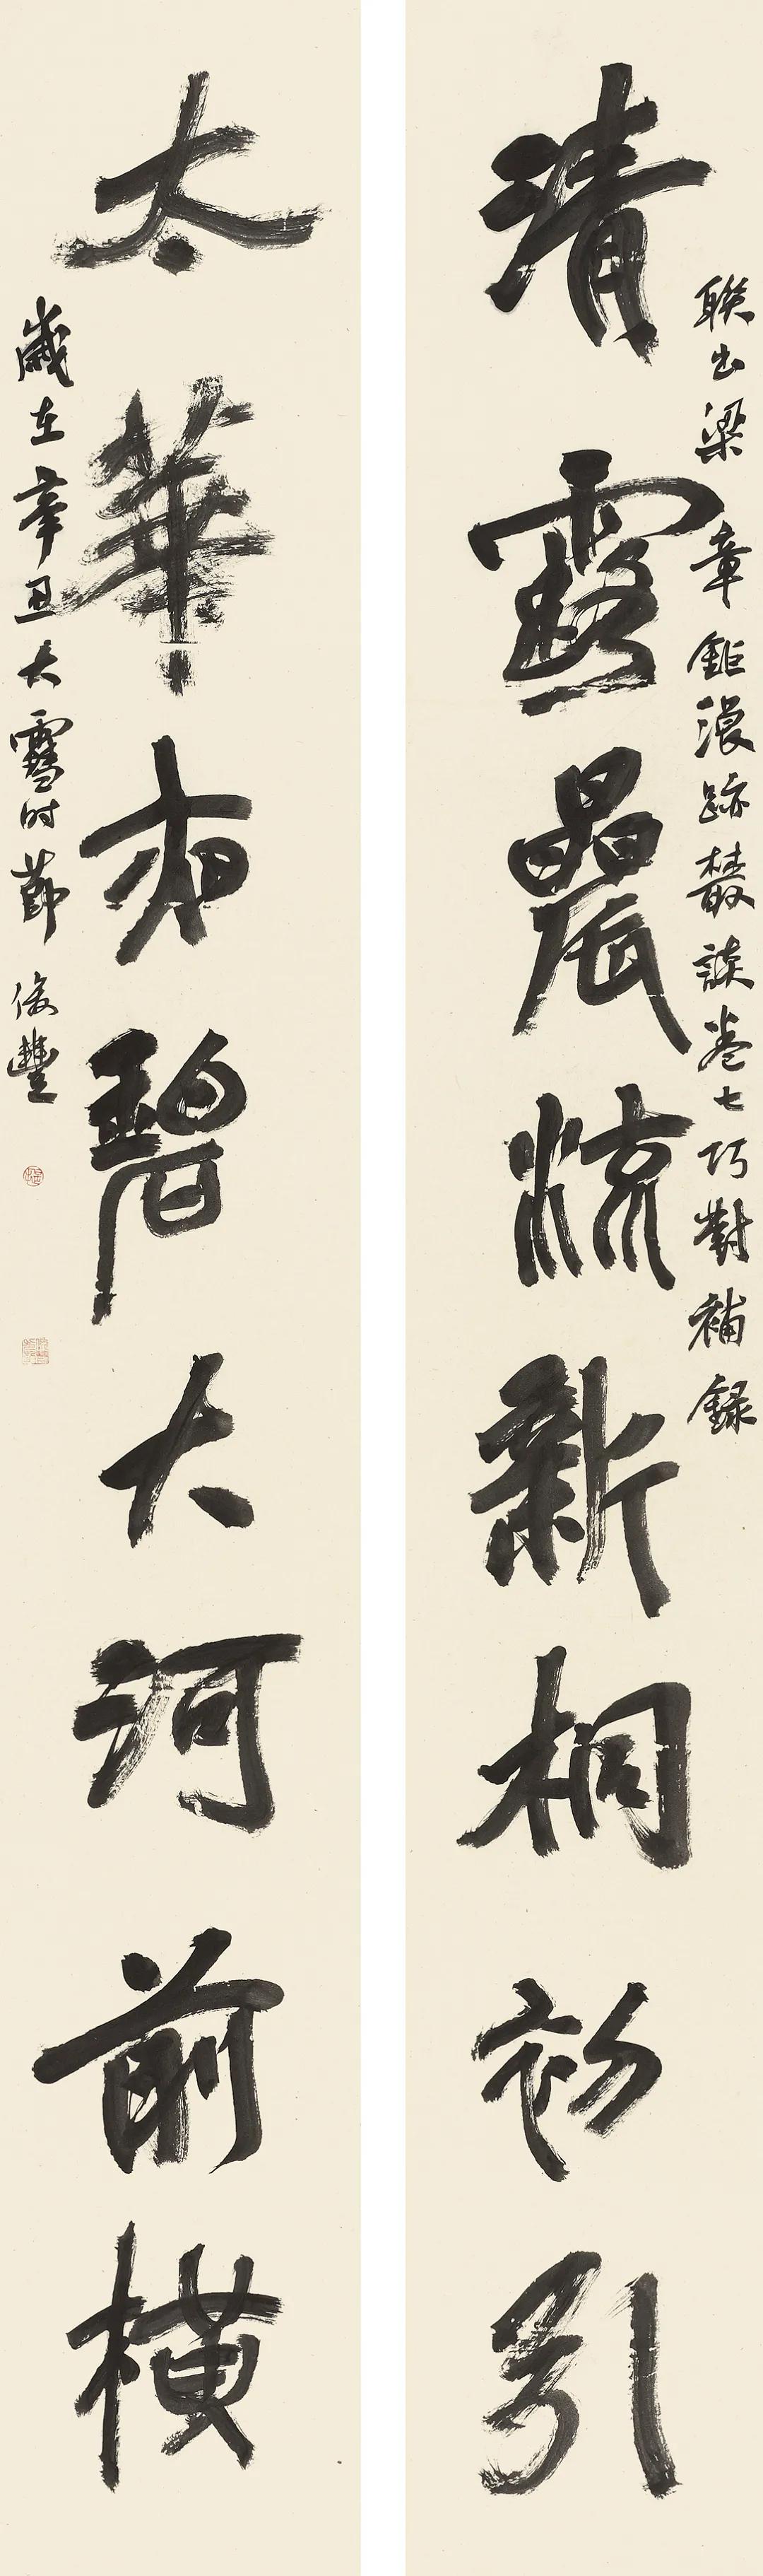 清露晨流新桐初引
聯出梁章鉅浪跡叢談卷七巧對補錄
太華夜碧大河前橫
歲在辛丑大雪時節俊豐